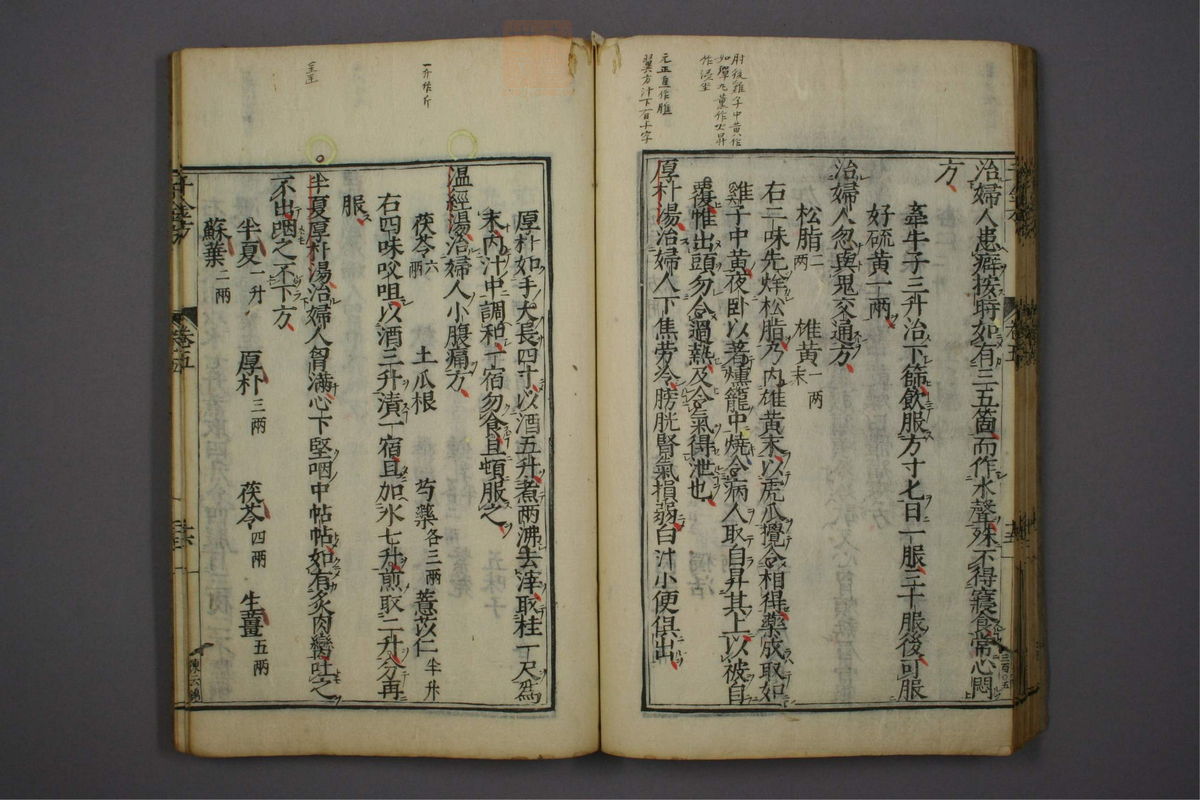 肘後雞子中黄作
如彈丸薫作火昇
作浸坐
元正直作膲
翼方汁下有于字
治婦人患癖按時如有三五箇而作水聲殊不得寢食常心悶
方
牽牛子三升治下篩飲服方寸匕日一服三十服後可服
好硫黄一兩
治婦人忽與鬼交通方
松脂二兩 雄黄一兩末
右二味先烊松脂乃内雄黄末以虎爪攪令相得藥成取如
雞子中黄夜卧以著燻籠中燒令病人取自昇其上以被自
覆惟出頭勿令過熱及令氣得泄也
厚朴湯治婦人下焦劳冷膀胱腎氣損弱白汁小便俱出
千金方
卷五
一升作斤
厚朴如手大長四寸以酒五升煮兩沸去滓取桂一尺爲
末内汁中調和一宿勿食旦頓服之
温經湯治婦人小腹痛方
茯苓六兩 土瓜根 芍藥各三兩 薏苡仁半升
右四味㕮咀以酒三升漬一宿旦加水七升煎取二升分再
服
半夏厚朴湯治婦人胷滿心下堅咽中帖帖如有炙肉臠吐之
不出咽之不下方
半夏一升 厚朴三兩 茯苓四兩 生薑五兩
蘇葉二兩
千金方
卷五